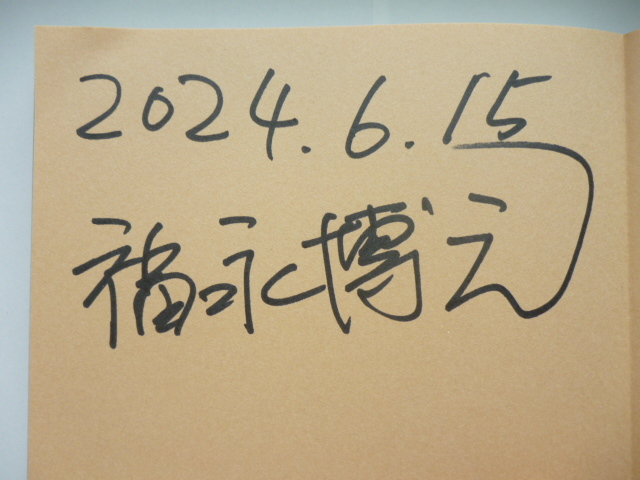 2024.6.15
福永博之